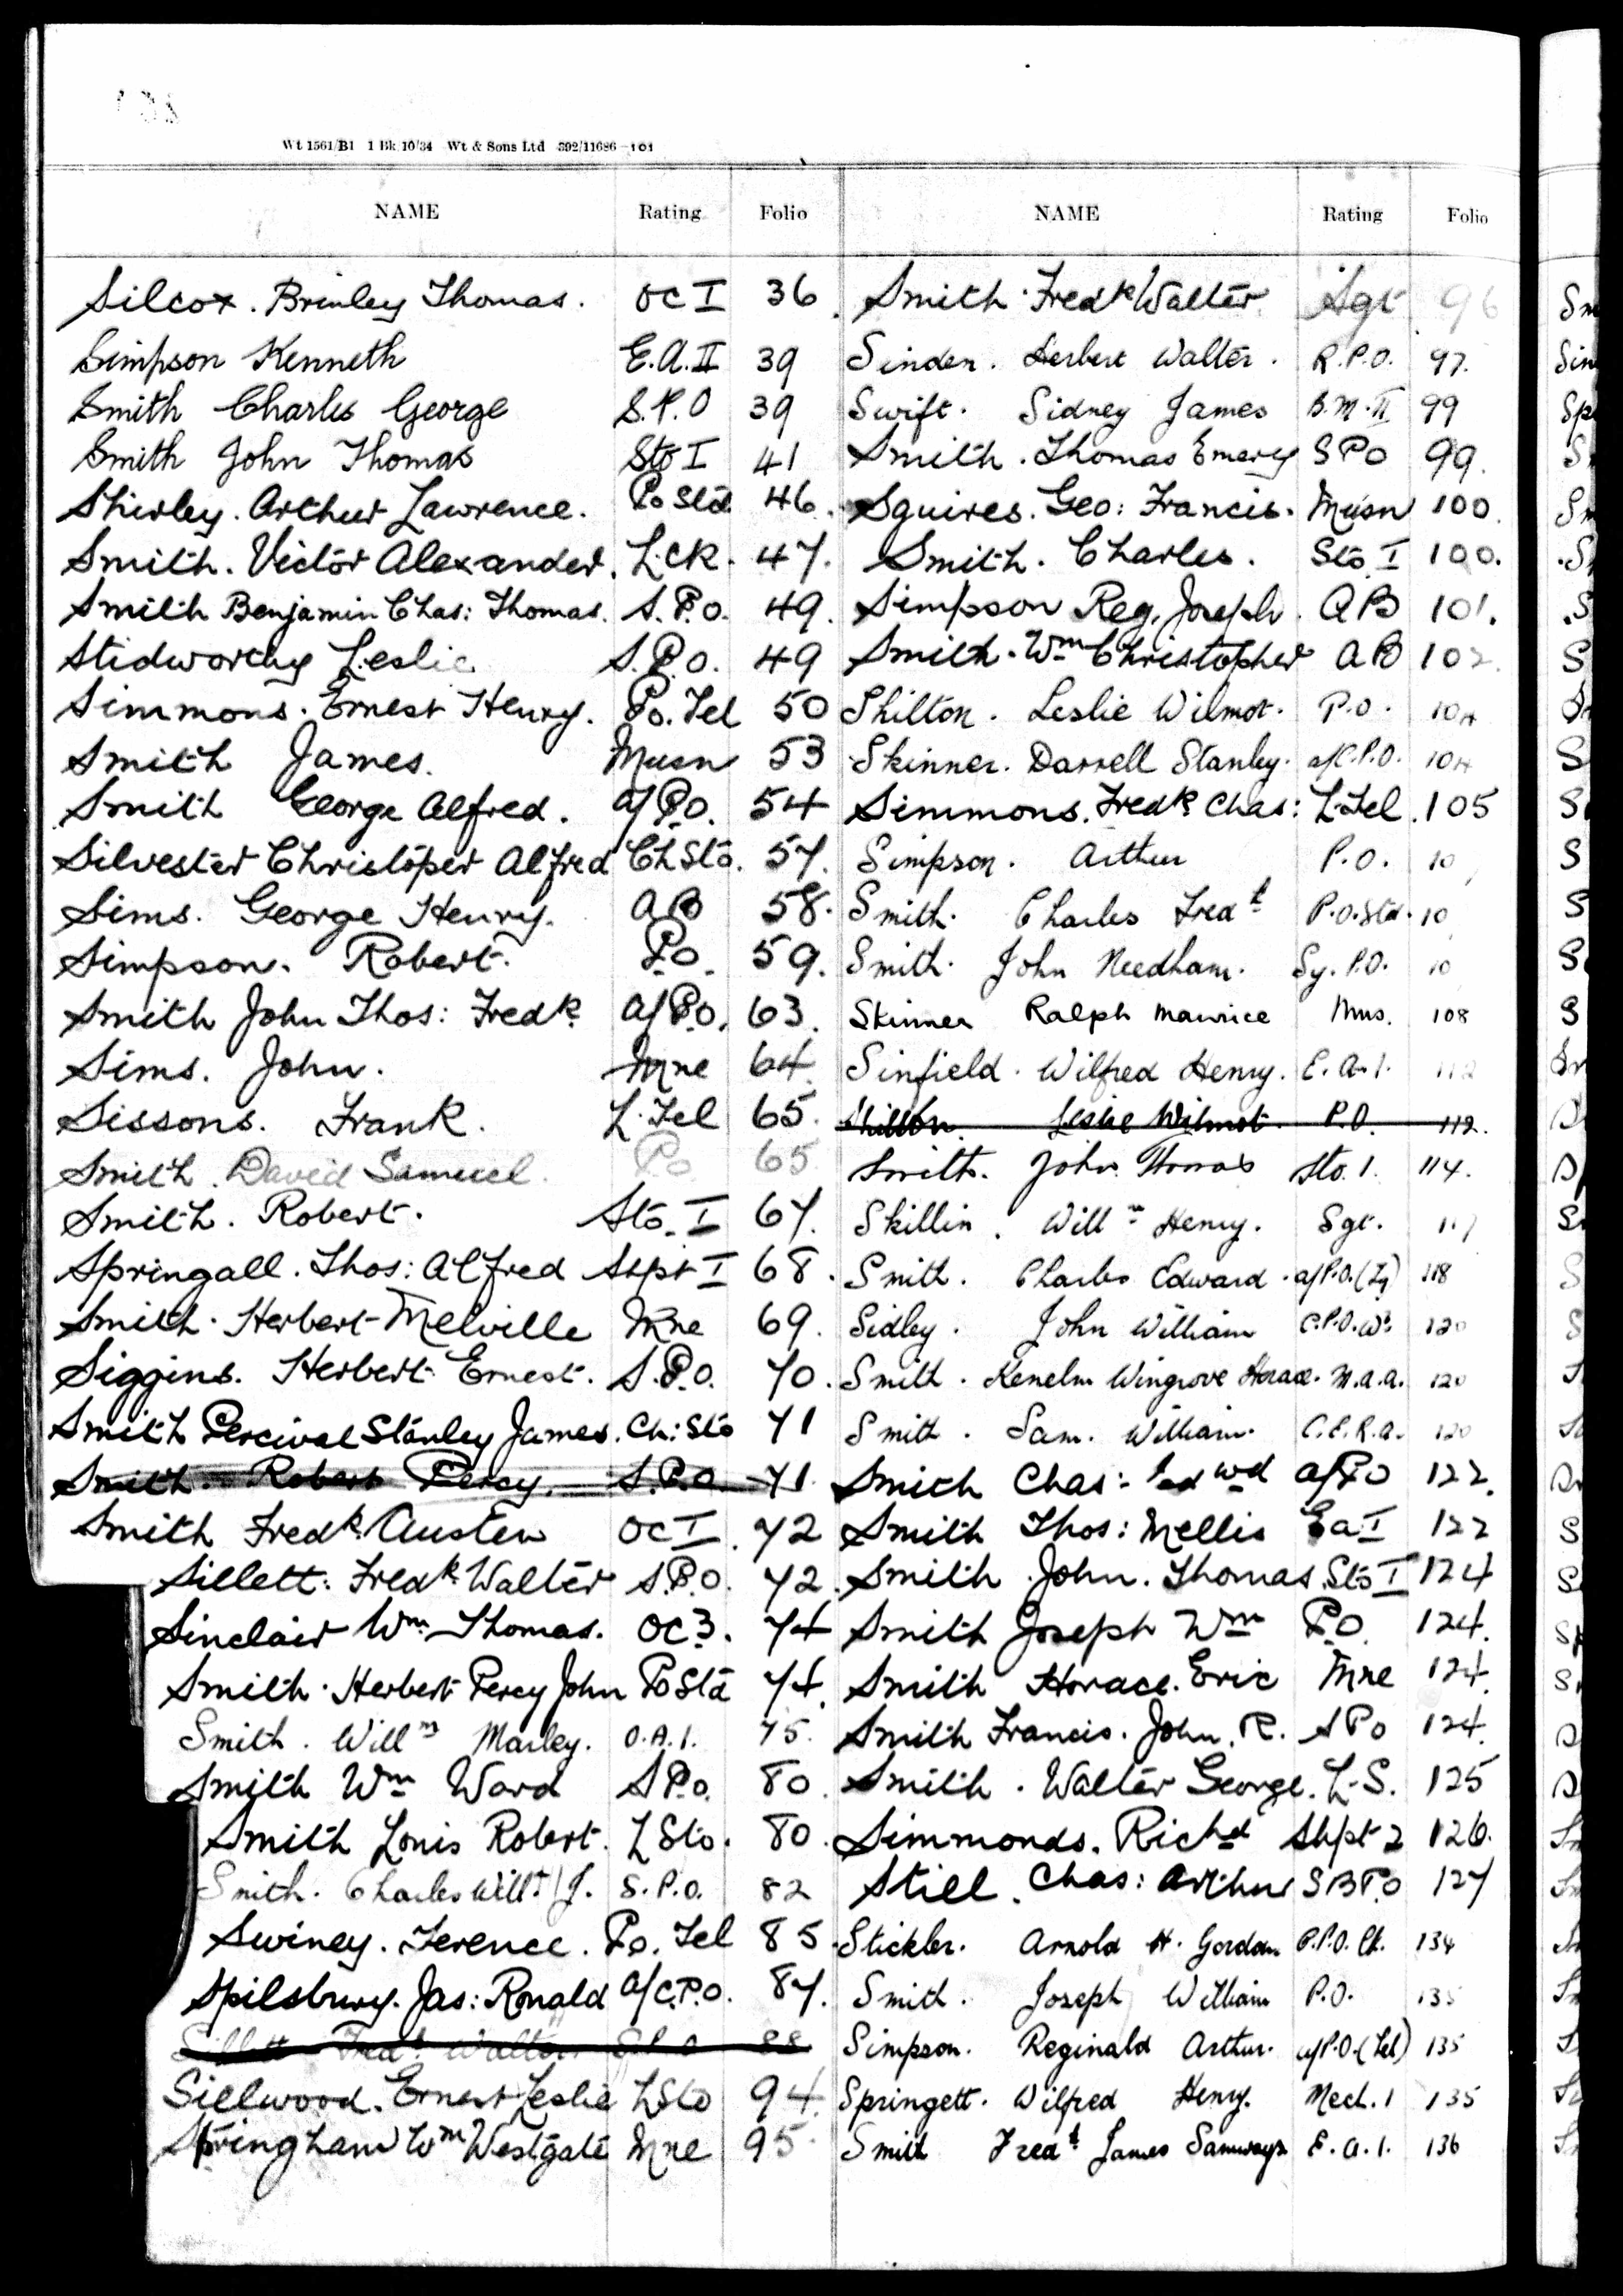 Wt 1561/B1 1 Bk 10/34 Wt & Sons Ltd 392/11686—101
NAME Rating Folio
Silcox. Brinley Thomas. OC I 36
Simpson Kenneth E.A. II 39
Smith Charles George S.P.O 39
Smith John Thomas Sto I 41
Shirley. Arthur Lawrence. Po Sto 46.
Smith. Victor Alexander. L.CK. 47.
Smith Benjamin Chas: Thomas. S.P.O. 49.
Stidworthy Leslie S.P.O. 49
Simmons. Ernest Henry. Po. Tel 50
Smith James. Musn 53
Smith George Alfred. a/P.O. 54
Silvester Christoper Alfred Ch Sto. 57.
Sims. George Henry. AB 58.
Simpson. Robert. P.O. 59.
Smith John Thos: Fredk. a/P.O. 63.
Sims. John. Mne 64.
Sissons. Frank. L.Tel 65.
Smith. David Samuel. Po 65
Smith. Robert. Sto. I 67.
Springall. Thos: Alfred Shpt I 68.
Smith. Herbert Melville Mne 69.
Siggins. Herbert Ernest. S.P.O. 70.
Smith Percival Stanley James. Ch: Sto 71
Smith. Robert Percy. S.P.O. 71.
Smith Fredk. Austen OC I 72
Sillett: Fredk. Walter S.P.O. 72.
Sinclair Wm. Thomas. OC 3. 74
Smith. Herbert Percy John Po Sto 74.
Smith. Willm Marley. O.A.1. 75.
Smith Wm Ward S P.O. 80.
Smith Louis Robert. L Sto. 80.
Smith. Charles Willm J. S.P.O. 82
Swiney. Terence. Po. Tel 85.
Spilsbury. Jas: Ronald a/C.P.O. 87.
Sillett Fredk Walter S.P.O 88
Sillwood. Ernest Leslie L Sto 94.
Stringham Wm Westgate Mne 95.
NAME Rating Folio
Smith. Fredk Walter. Sgt 96
Sinden. Herbert Walter. R.P.O. 97.
Swift. Sidney James B.M. II 99
Smith. Thomas Emery S P O 99.
Squires. Geo: Francis. Musn 100.
Smith. Charles. Sto I 100.
Simpson Reg. Joseph. AB 101.
Smith. Wm Christopher AB 102.
Shilton. Leslie Wilmot. P.O. 104
Skinner. Darrell Stanley. a/C.P.O. 104
Simmons. Fredk. Chas: L.Tel. 105
Simpson. Arthur P.O. 10
Smith. Charles Fredk P.O. Sto. 10
Smith. John Needham. Sy. P.O. 10
Skinner Ralph Maurice Mus. 108
Sinfield. Wilfred Henry. E.A.1. 112
Shilton. Leslie Wilmot. P.O. 112.
Smith. John Thomas Sto. 1. 114.
Skillin. Willm Henry. Sgt. 117
Smith. Charles Edward. a/P.O. 118
Sidley. John William C.P.O. Wr. 120
Smith. Kenelm Wingrove Horace. M.A.A. 120
Smith. Sam. William. C.E.R.A. 120
Smith Chas: Edwd a/P.O 122.
Smith Thos: Mellis E A I 122
Smith John. Thomas. Sto I 124
Smith Joseph Wm P.O. 124.
Smith Horace. Eric Mne 124.
Smith Francis. John. R. S P O 124.
Smith. Walter George. L.S. 125
Simmonds. Richd Shpt 2 126.
Still. Chas: Arthur S B P.O 127
Stickler. Arnold H. Gordon P.P.O. Ck. 134
Smith. Joseph William P.O. 135
Simpson. Reginald Arthur. a/P.O. (Tel) 135
Springett. Wilfred Henry. Mech. 1 135
Smith Fredk James Samways E.A.1. 136